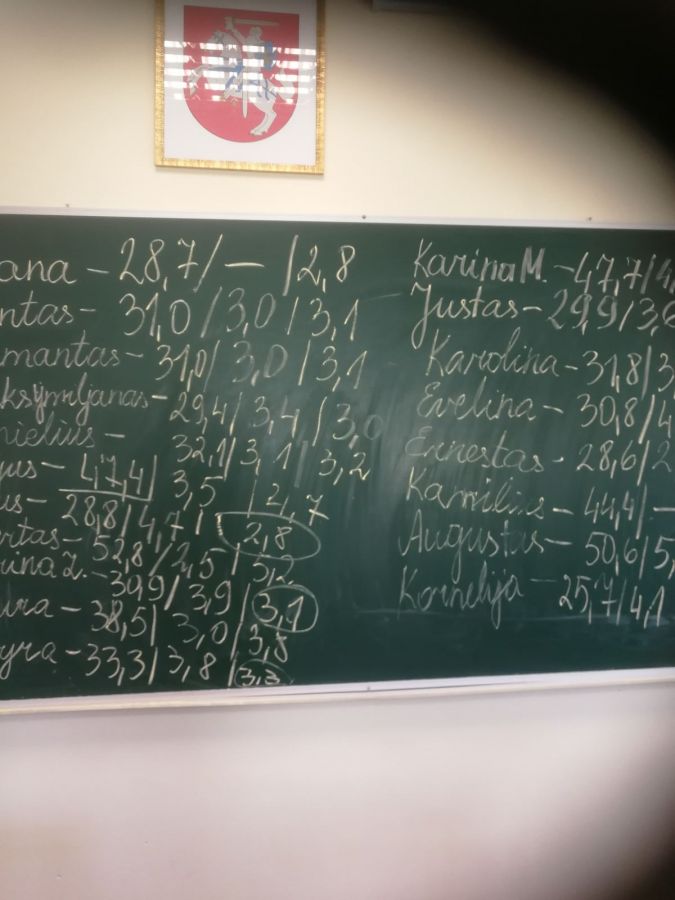 ana - 28,7/ - /2,8
ntas - 31,0/3,0/3,1
mantas - 31,0/3,0/3,1
ksymiljanas - 29,4/3,4/3,0
nielius - 32,1/3,1/3,2
us - 47,4/3,5/4,7
us - 28,8/4,7/2,8
rtas - 52,8/2,5/5,2
rina Z. - 30,9/3,9/3,1
ura - 38,5/3,0/3,8
yra - 33,3/3,8/3,3
Karina M. - 47,7/4,
Justas - 29,9/3,6
Karolina - 31,8/3,
Evelina - 30,8/4
Ernestas - 28,6/2
Kamilius - 44,4/-
Augustas - 50,6/5,
Kornelija - 25,7/4,1